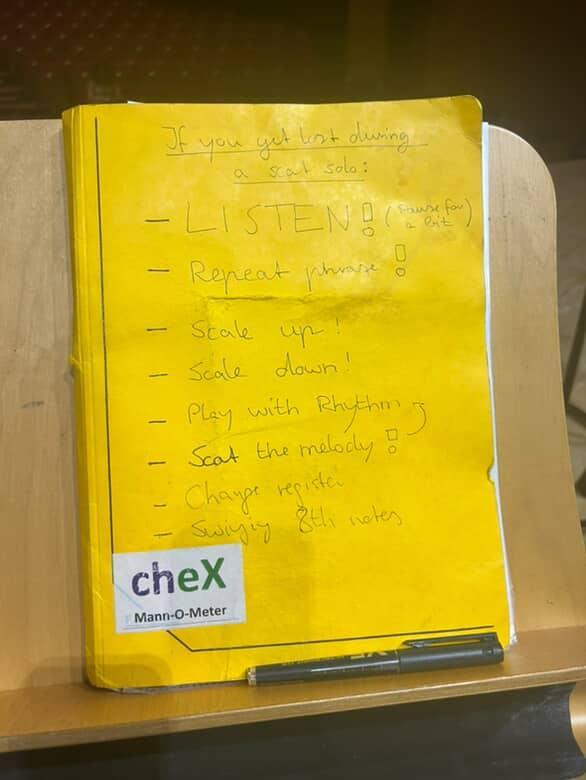 If you get lost during
a scat solo:
- LISTEN! (Pause for
a bit)
- Repeat phrase!
- Scale up!
- Scale down!
- Play with Rhythm
- Scat the melody!
- Change register
- Swinging 8th notes
cheX
Mann-O-Meter